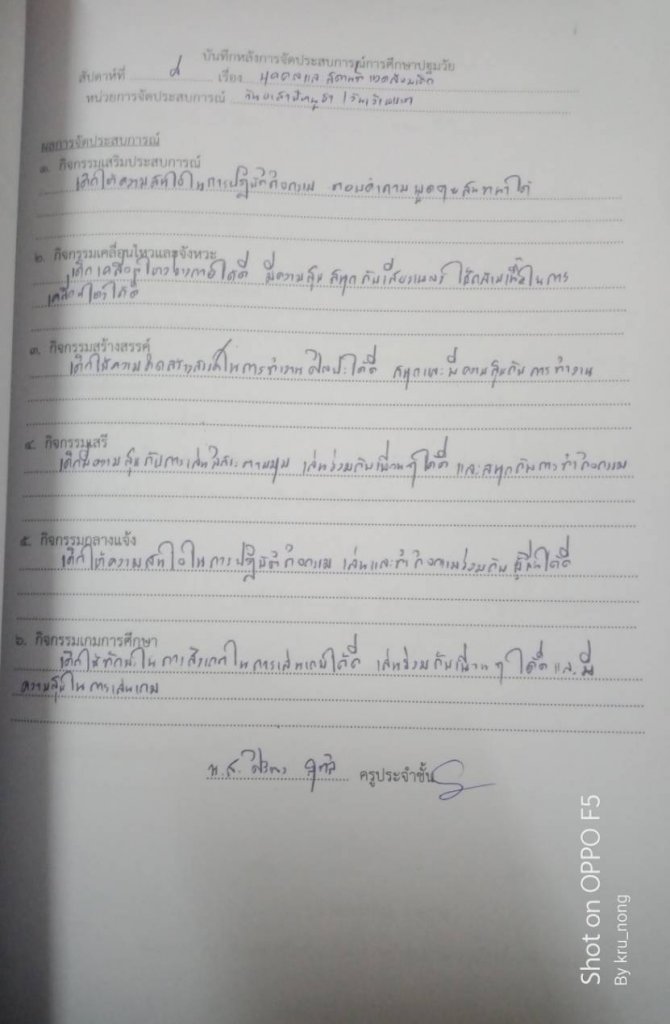 บันทึกหลังการจัดประสบการณ์การศึกษาปฐมวัย
สัปดาห์ที่ ๘ เรื่อง บุคคลและสถานที่แวดล้อมเด็ก
หน่วยการจัดประสบการณ์ วันอาสาฬหบูชา / วันเข้าพรรษา
ผลการจัดประสบการณ์
๑. กิจกรรมเสริมประสบการณ์
เด็กให้ความสนใจในการปฏิบัติกิจกรรม ตอบคำถาม พูดคุยสนทนาได้
๒. กิจกรรมเคลื่อนไหวและจังหวะ
เด็กเคลื่อนไหวร่างกายได้ดี มีความสุข สนุกกับเสียงเพลง ใช้กล้ามเนื้อในการ
เคลื่อนไหวได้ดี
๓. กิจกรรมสร้างสรรค์
เด็กใช้ความคิดสร้างสรรค์ในการทำงานศิลปะได้ดี สนุกและมีความสุขกับการทำงาน
๔. กิจกรรมเสรี
เด็กมีความสุขกับการเล่นอิสระตามมุม เล่นร่วมกับเพื่อนๆได้ดี และสนุกกับการทำกิจกรรม
๕. กิจกรรมกลางแจ้ง
เด็กให้ความสนใจในการปฏิบัติกิจกรรม เล่นและทำกิจกรรมร่วมกับผู้อื่นได้ดี
๖. กิจกรรมเกมการศึกษา
เด็กใช้ทักษะในการสังเกตในการเล่นเกมได้ดี เล่นร่วมกับเพื่อนๆ ได้ดี และมี
ความสุขในการเล่นเกม
น.ส. ครูประจำชั้น
Shot on OPPO F5
By kru_nong